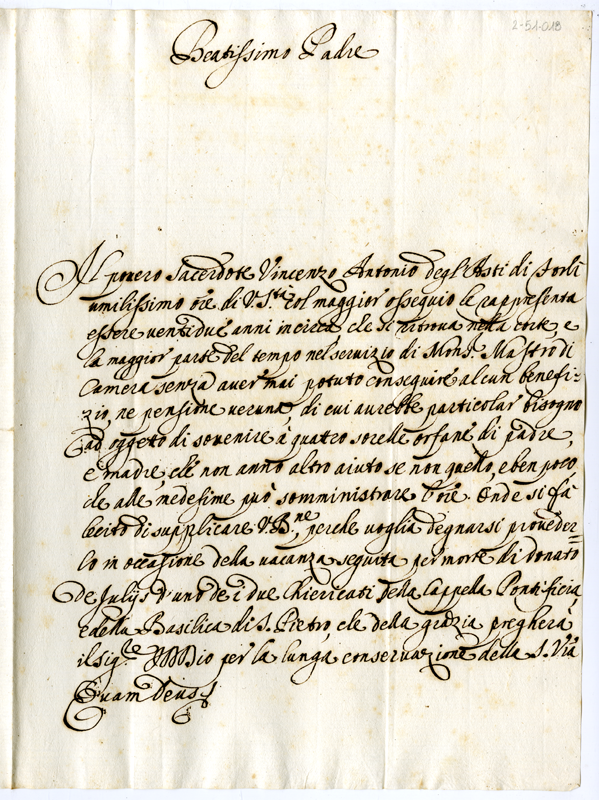 2-51-018
Beatissimo Padre
Il povero Sacerdote Vincenzo Antonio degl'Asti di Forlì
umilissimo ore di V. S.tà col maggior ossequio le rappresenta
essere ventidue anni incirca che si ritrova nella corte, e
la maggior parte del tempo nel servizio di Mons.r Mastro di
Camera senza aver mai potuto conseguire alcun benefi-
zio, ne pensione veruna, di cui avrebbe particolar bisogno
ad oggeto di sovenire à quattro sorelle orfane di padre,
e madre, che non anno altro aiuto se non quello, e ben poco
che alle medesime può somministrare l'ore. Onde si fà
lecito di supplicare V. B.ne, perche voglia degnarsi proveder-
lo in occasione della vacanza seguita per morte di Donato
de Julijs d'uno de i due Chiericati della Cappella Pontificia,
e della Basilica di S. Pietro, che della grazia pregherà
il Sig.re Iddio per la lunga conservazione della S. Vrā
Quam Deus